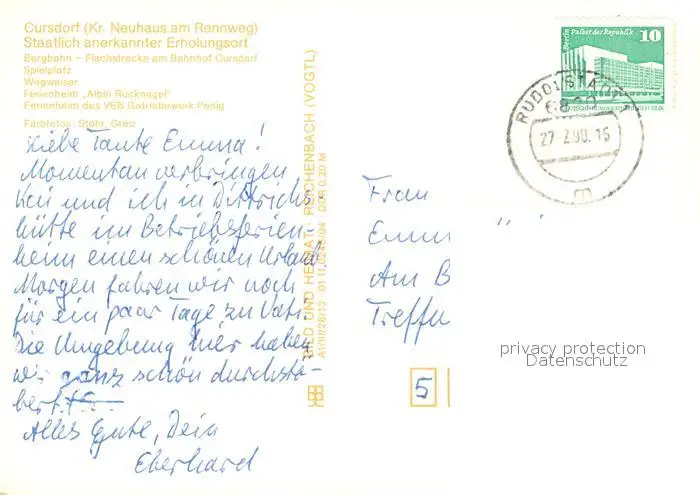 Cursdorf (Kr. Neuhaus am Rennweg)
Staatlich anerkannter Erholungsort
Bergbahn – Flachstrecke am Bahnhof Cursdorf
Spielplatz
Wegweiser
Ferienheim „Albin Rucknagel"
Ferienheim des VEB Getriebewerk Penig
Farbfotos: Stöhr, Greiz
Liebe Tante Emma!
Momentan verbringen
und ich in Dittrichs-
hütte im Betriebsferien-
heim einen schönen Urlaub
Morgen fahren wir noch
für ein paar Tage zu Vati.
Die Umgebung hier haben
wir ganz schön durchstö-
bert.
Alles Gute, Dein
Eberhard
BILD UND HEIMAT REICHENBACH (VOGTL)
A1/III/26/13 01 11 0245/04 DDR 0,20 M
Berlin, Palast der Republik
10
RUDOLSTADT
27.2.90.15
Frau
Emm
Am B
Treffu
5
privacy protection
Datenschutz